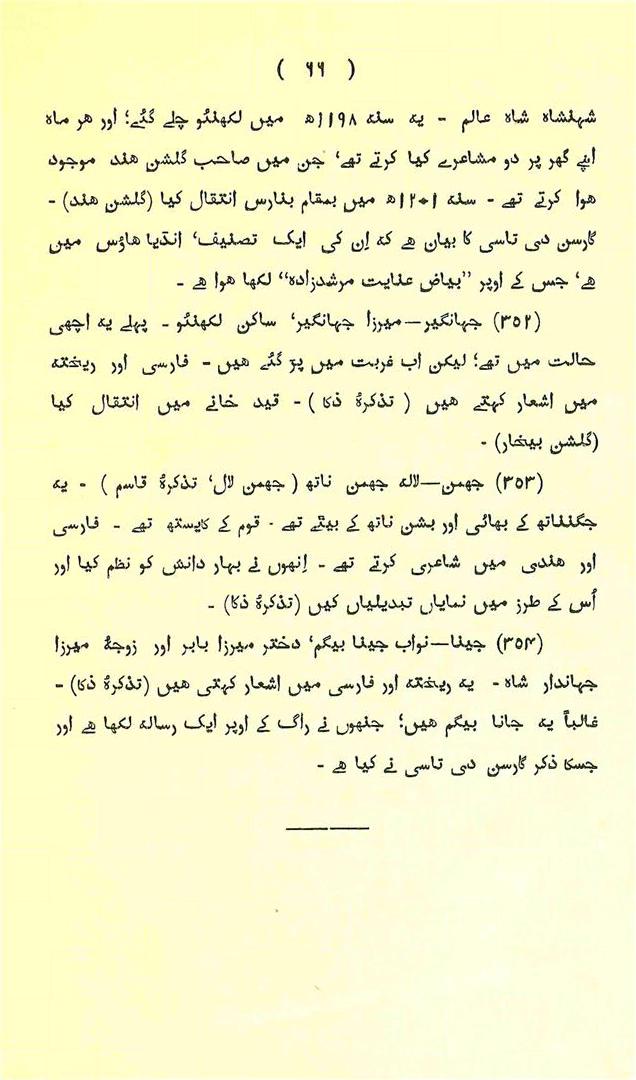 ( ۶۶ )
شہنشاہ شاہ عالم - یہ سنہ ۱۱۹۸ھ میں لکھنئو چلے گئے؛ اور ہر ماہ
اپنے گھر پر دو مشاعرے کیا کرتے تھے، جن میں صاحب گلشن ہند موجود
ہوا کرتے تھے - سنہ ۱۲۰۱ھ میں بمقام بنارس انتقال کیا (گلشن ہند) -
گارسن دی تاسی کا بیان ہے کہ اِن کی ایک تصنیف، انڈیا ہاؤس میں
ہے، جس کے اوپر ”بیاض عنایت مرشدزادہ“ لکھا ہوا ہے -
(۳۵۲) جہانگیر—میرزا جہانگیر، ساکن لکھنئو - پہلے یہ اچھی
حالت میں تھے؛ لیکن اب غربت میں پڑ گئے ہیں - فارسی اور ریختہ
میں اشعار کہتے ہیں ( تذکرۂ ذکا ) - قید خانے میں انتقال کیا
(گلشن بیخار) -
(۳۵۳) جھمن—لالہ جھمن ناتھ ( جھمن لال، تذکرۂ قاسم ) - یہ
جگنناتھ کے بھائی اور بشن ناتھ کے بیٹے تھے - قوم کے کایستھ تھے - فارسی
اور ہندی میں شاعری کرتے تھے - اِنھوں نے بہار دانش کو نظم کیا اور
اُس کے طرز میں نمایاں تبدیلیاں کیں (تذکرۂ ذکا) -
(۳۵۴) جینا—نواب جینا بیگم، دختر میرزا بابر اور زوجۂ میرزا
جہاندار شاہ - یہ ریختہ اور فارسی میں اشعار کہتی ہیں (تذکرۂ ذکا) -
غالباً یہ جانا بیگم ہیں؛ جنھوں نے راگ کے اوپر ایک رسالہ لکھا ہے اور
جسکا ذکر گارسن دی تاسی نے کیا ہے -